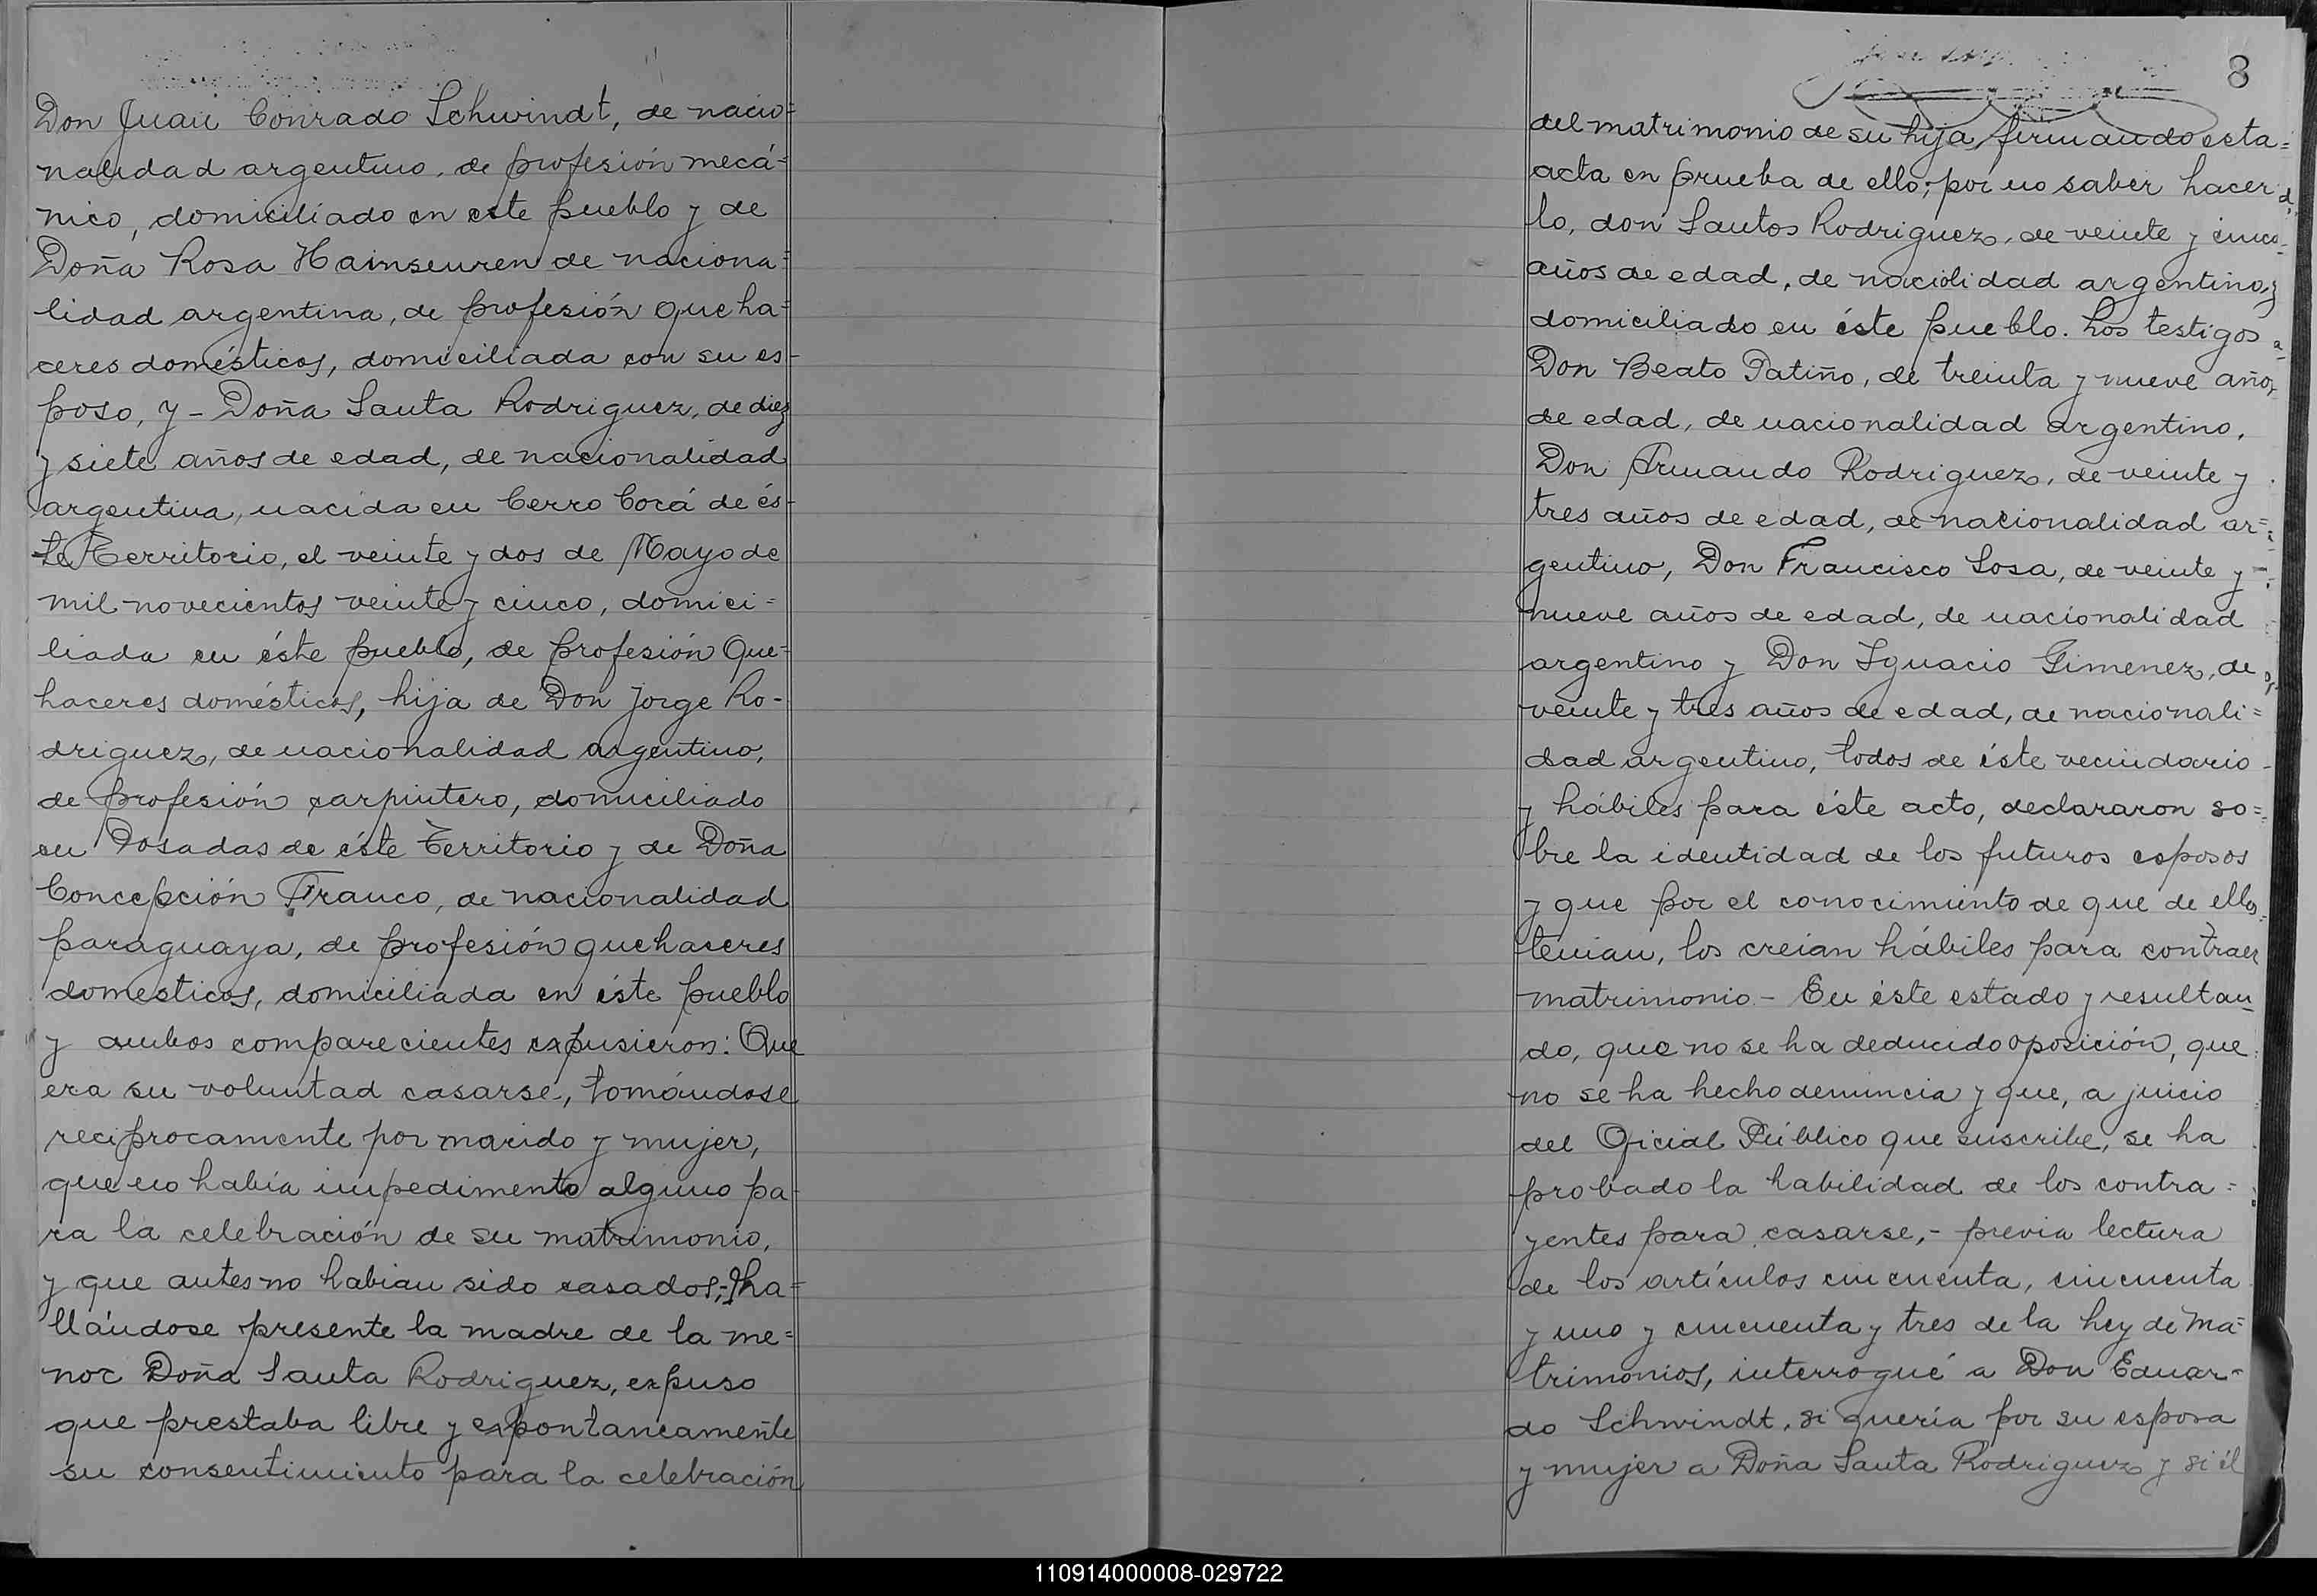 Don Juan Conrado Schwindt, de nacio=
nalidad argentino, de profesión mecá=
nico, domiciliado en este pueblo y de
Doña Rosa Hainseuren de naciona=
lidad argentina, de profesión queha=
ceres domésticos, domiciliada con su es-
poso, y - Doña Santa Rodriguez, de diez
y siete años de edad, de nacionalidad
argentina, nacida en Cerro Corá de és-
te Territorio, el veinte y dos de Mayo de
mil novecientos veinte y cinco, domici=
liada en éste pueblo, de profesión Que=
haceres domésticos, hija de Don Jorge Ro-
driguez, de nacionalidad argentino,
de profesión carpintero, domiciliado
en Posadas de éste Territorio y de Doña
Concepción Franco, de nacionalidad
paraguaya, de profesión quehaceres
domesticos, domiciliada en éste pueblo
y ambos comparecientes expusieron: Que
era su voluntad casarse, tomándose
reciprocamente por marido y mujer,
que no había impedimento alguno pa-
ra la celebración de su matrimonio,
y que antes no habian sido casados;- Y ha=
llándose presente la madre de la me=
nor Doña Santa Rodriguez, expuso
que prestaba libre y expontaneamente
su consentimiento para la celebración
8
del matrimonio de su hija, firmando esta
acta en prueba de ello, por no saber hacer
lo, don Santos Rodriguez, de veinte y cinco
años de edad, de naciolidad argentino, y
domiciliado en éste pueblo. Los testigos
Don Beato Patiño, de treinta y nueve años
de edad, de nacionalidad argentino,
Don Armando Rodriguez, de veinte y
tres años de edad, de nacionalidad ar=
gentino, Don Francisco Sosa, de veinte y
nueve años de edad, de nacionalidad
argentino y Don Ignacio Gimenez, de
veinte y tres años de edad, de nacionali=
dad argentino, todos de éste vecindario
y hábiles para éste acto, declararon so=
bre la identidad de los futuros esposos
y que por el conocimiento de que de ellos
tenian, los creian hábiles para contraer
matrimonio - En éste estado y resultan
do, que no se ha deducido oposición, que
no se ha hecho denuncia y que, a juicio
del Oficial Público que suscribe, se ha
probado la habilidad de los contra=
yentes para casarse,- previa lectura
de los artículos cincuenta, cincuenta
y uno y cincuenta y tres de la Ley de Ma=
trimonios, interrogué a Don Eduar-
do Schwindt, si quería por su esposa
y mujer a Doña Santa Rodriguez y si él
110914000008-029722